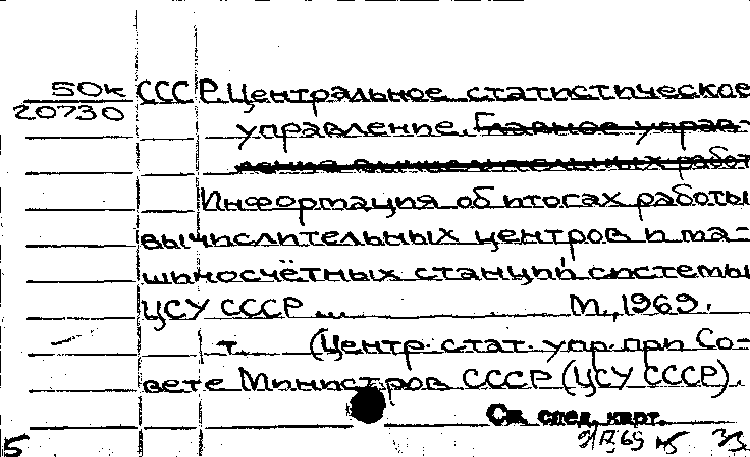 50к СССР. Центральное статистическое
20730
управление. Главное управ-
ление вычислительных работ
Информация об итогах работы
вычислительных центров и ма-
шиносчётных станций системы
ЦСУ СССР ... М., 1969.
т. (Центр. стат. упр. при Со-
вете Министров СССР (ЦСУ СССР).
См. спец. карт.
5 33